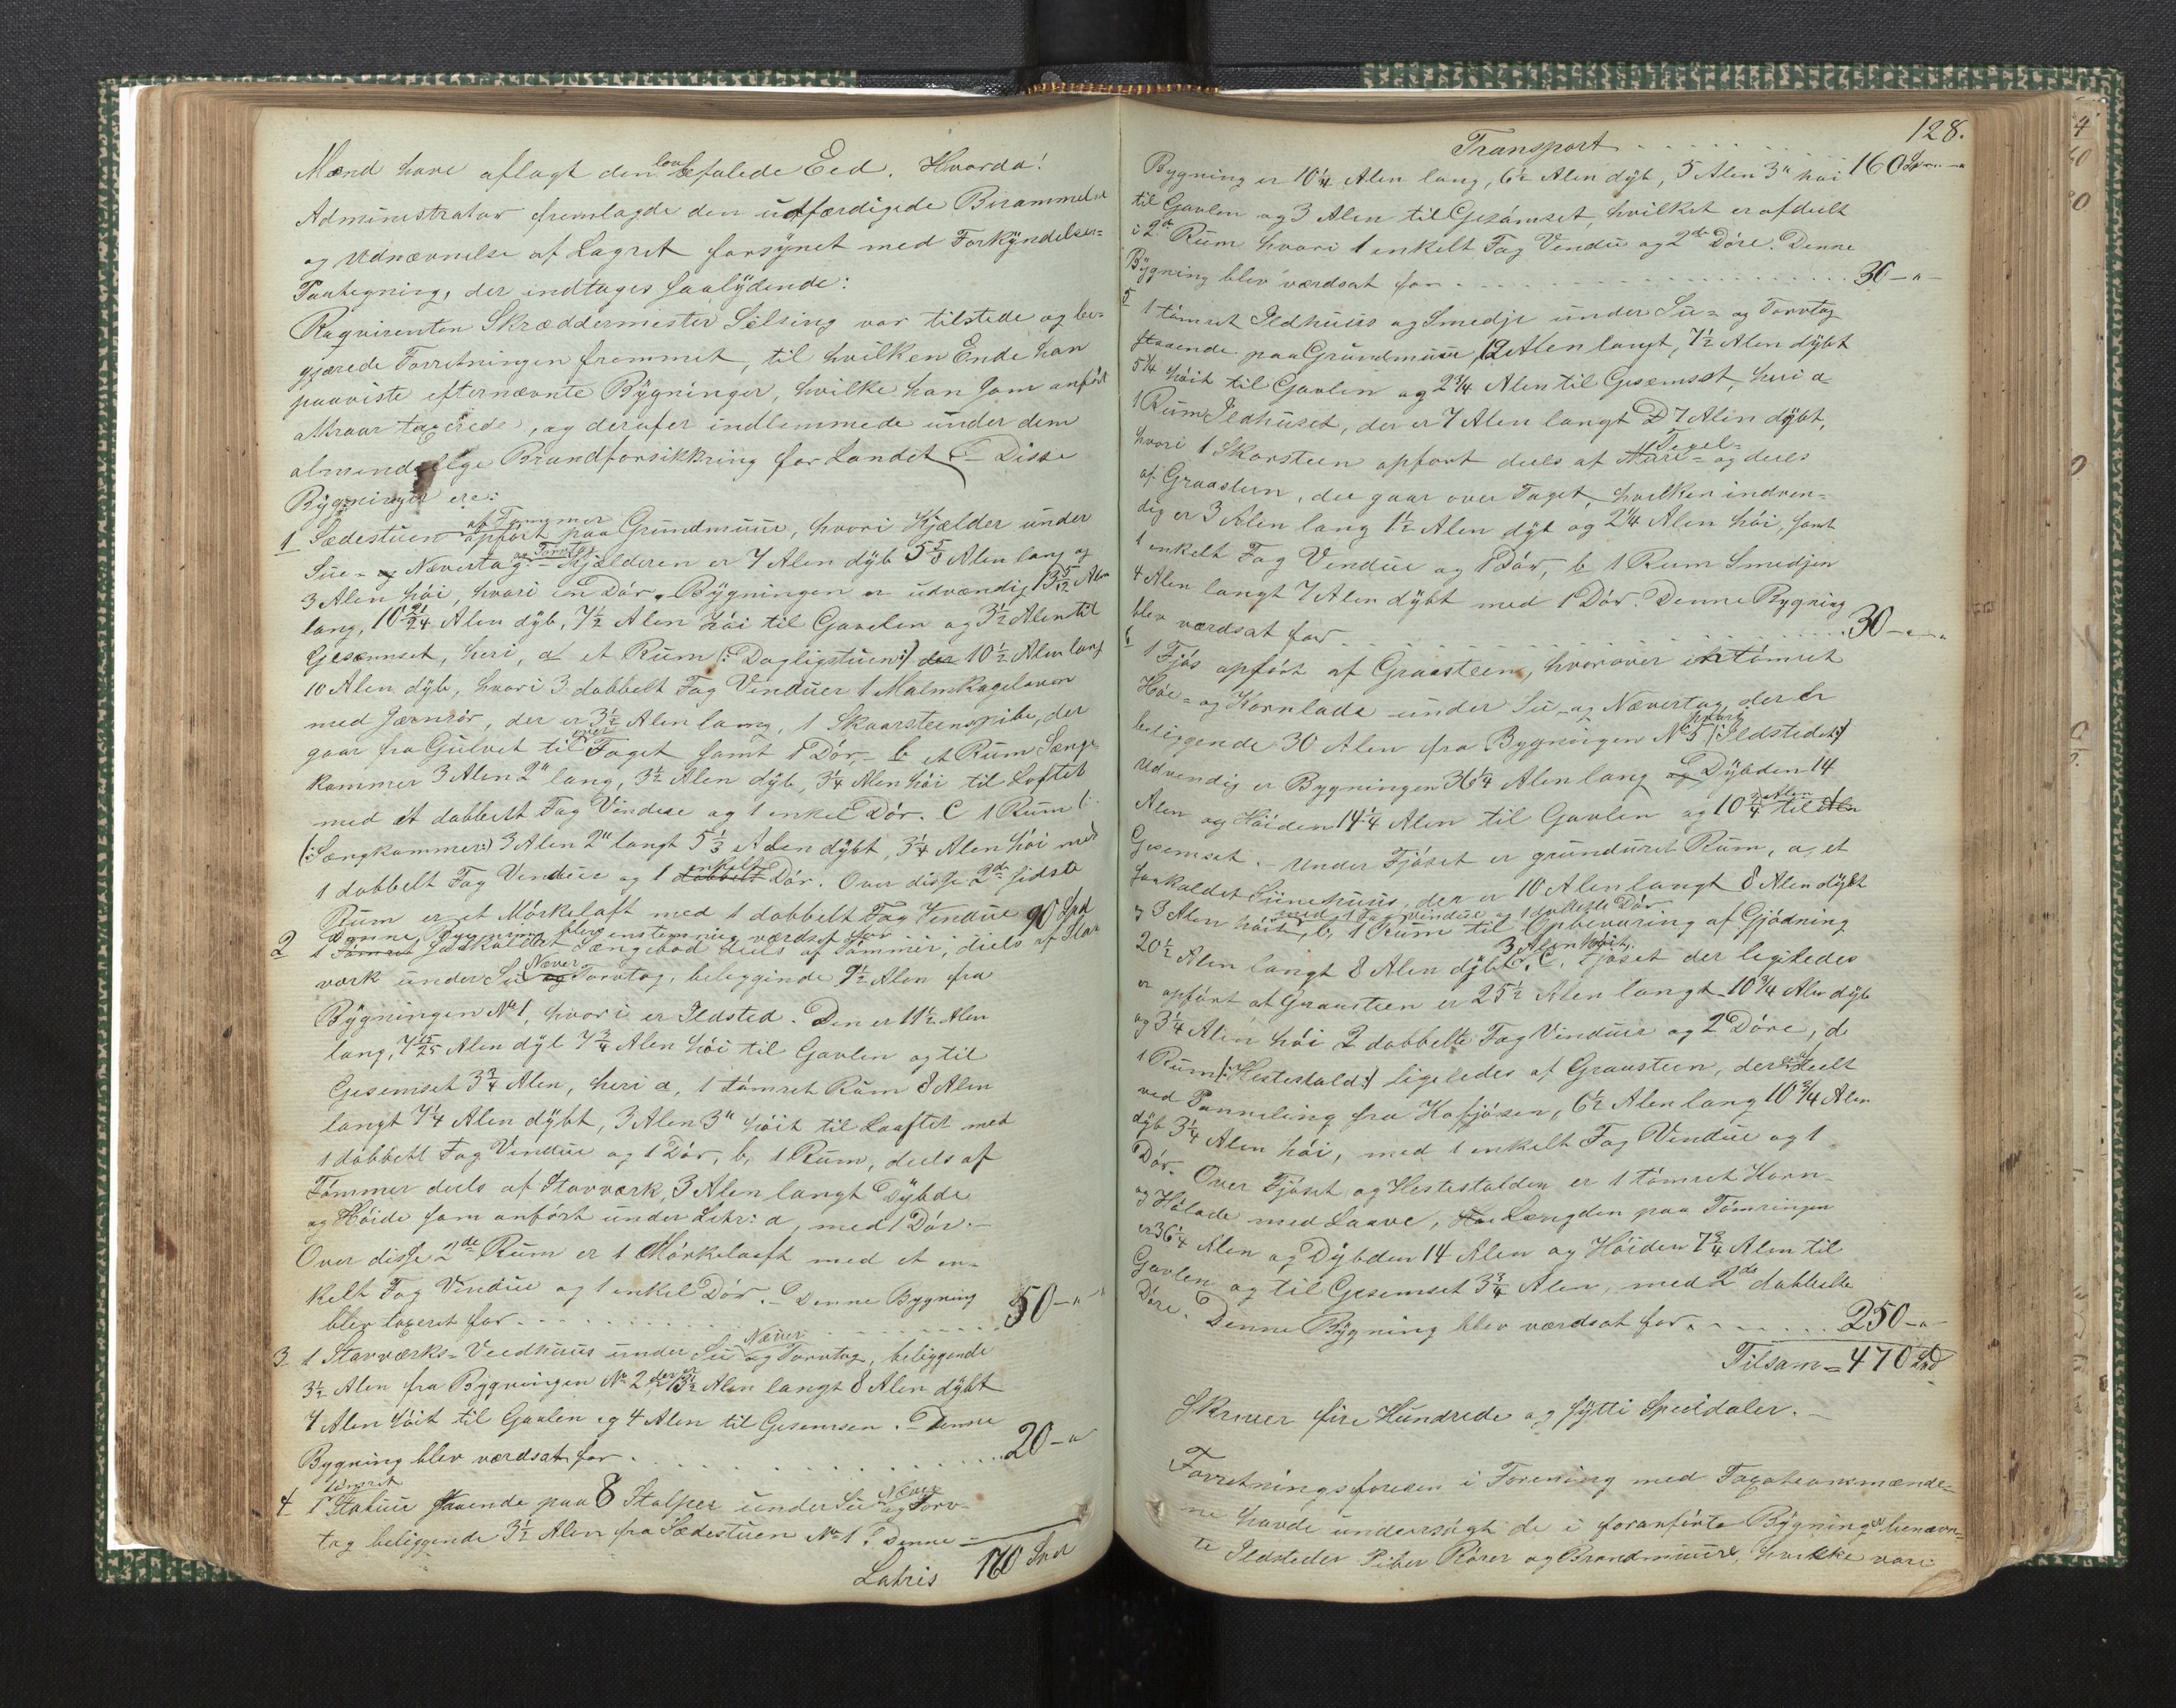 Mænd have aflagt den lovbefalede Eed. Hvorda!
Administrator fremlagde den udfærdigede Berammelse
og Udnævnelse af Lagret forsynet med Forkÿndelses=
Paategning, der indtages saalÿdende:
Reqvirenten Skræddermester Selsing var tilstede og be=
gjærede Forretningen fremmet, til hvilken Ende han
paaviste efternævnte Bÿgninger, hvilke han som anført
attraar taxerede, og derefter indlemmede under den
almindelige Brandforsikkring for Landet. Disse
Bÿgninger ere:
1 Sædestuen af Tømmer opført paa Grundmuur, hvori Kjælder under
Sue- og Nævertag og Torvtag. Kjælderen er 7 Alen dÿb 5 5/3 Alen lang og
3 Alen høi, hvori en Dør. Bÿgningen er udvændig 13 5/12 Alen
lang, 10 21/24 Alen dÿb, 7 1/2 Alen høi til Gavelen og 3 1/2 Alen til
Gesemset, heri, a et Rum (: Dagligstuen:) der 10 1/2 Alen lang
10 Alen dÿb, hvori 3 dobbelt Fag Vinduer 1 Malmkagelovn
med Jernrør, der er 3 1/2 Alen lang, 1 Skaarsteenspibe, der
gaar fra Gulvet til over Taget samt 1 Dør,- b et Rum Senge
kammer 3 Alen 2" lang, 3 1/2 Alen dÿb, 3 1/4 Alen høi til Loftet
med et dobbelt Fag Vindue og 1 enkel Dør. C 1 Rum
(:Sængkammer:) 3 Alen 2" langt 5 1/3 Alen dÿbt, 3 1/4 Alen høi med
1 dobbelt Fag Vindue og 1 dobbelt enkelt Dør. Over disse 2de sidste
Rum er et Mørkeloft med 1 dobbelt Fag Vindue 90 Spd
Denne Bygning blev enstemmig værdsat for
2 1 Tømret saakaldet Sængebod deels af Tømmer, deels af Stav
værk under Su Næver og Torvtag, beliggende 9 1/2 Alen fra
Bÿgningen No 1, hvori er Ildsted. Den er 11 1/2 Alen
lang, 7 15/25 Alen dÿb 7 3/4 Alen høi til Gavlen og til
Gesemset 3 3/4 Alen, heri a, 1 tømret Rum 8 Alen
langt 7 1/4 Alen dÿbt, 3 Alen 3" høit til Looftet med
1 dobbelt Fag Vindue og 1 Dør, b, 1 Rum, deels af
Tømmer deels af Stavværk, 3 Alen langt Dÿbde
og Høide som anført under Litr: a, med 1 Dør.-
Over disse 2de Rum er 1 Mørkelooft med et en-
kelt Fag Vindue og 1 enkel Dør.- Denne Bygning
blev taxeret for . . . . . 50 - "
3 1 Stavværks=Veedhuus under Su Næver og Torvtag, beliggende
3 1/2 Alen fra Bÿgningen No 2 der er 13 1/2 Alen langt 8 Alen dÿbt
7 Alen høit til Gavlen og 4 Alen til Gesemsen. - Denne
Bygning blev værdsat for . . . . . 20 - "
4 1 tømret Stabuur staaende paa 8 Stolper under Su Næver og Torv-
tag beliggende 3 1/2 Alen fra Sædestuen No 1. Denne -
Latris 160 Spd
128.
Transport . . . . . 160 Spd - "
Bygning er 10 1/4 Alen lang, 6 1/2 Alen dÿb, 5 Alen 3" høi
til Gavlen og 3 Alen til Gesemset, hvilket er afdeelt
i 2de Rum hvori 1 enkelt Fag Vindu og 2de Døre. Denne
Bÿgning blev værdsat for . . . . . 30 - " -
5 1 tømret Ildhuus og Smedje under Su= og Torvtag
staaende paa Grundmuur, 12 Alen langt, 7 1/2 Alen dÿbt
5 1/4 høit til Gavlen og 2 3/4 Alen til Gesemset, heri a
1 Rum Ildhuset, der er 7 Alen langt 7 Alen dÿbt,
hvori 1 Skorsteen opført deels af Muur= Tegel= og deels
af Graasteen, der gaar over Taget, hvilken indven=
dig er 3 Alen lang 1 1/2 Alen dÿb og 2 1/4 Alen høi, samt
1 enkelt Fag Vindue og 1 Dør, b 1 Rum Smedjen
4 Alen langt 7 Alen dÿbt med 1 Dør. Denne Bygning
blev værdsat for . . . . . 30 - " -
6 1 Fjøs opført af Graasteen, hvorover er tømret
Høe= og Kornlade under Su og Nævertag, der er
beliggende 30 Alen fra Bygningen No 5 (: Ildstedet:)
Udvendig er Bygningen 36 1/4 Alen lang og Dÿbden 14
Alen og Høiden 14 1/4 Alen til Gavlen og 10 1/4 Alen til Alen
Gesemset. - Under Fjøset er grundmuret Rum, a, et
saakaldet Sunehuus, der er 10 Alen langt 8 Alen dÿbt
og 3 Alen høit, med 1 Fag Vindue og 1 dobbelt Dør b, 1 Rum til Opbevaring af Gjødning
20 1/2 Alen langt 8 Alen dÿbt, 3 Alen høit, C, Fjøset der ligeledes
er opført af Graasteen er 25 1/2 Alen langt 10 3/4 Alen dÿb
og 3 1/4 Alen høi 2 dobbelte Fag Vinduer og 2 Døre, d
1 Rum (: Hestestald:) ligeledes af Graasteen, der er afdeelt
ved Panneling fra Kofjøsen, 6 1/2 Alen lang 10 3/4 Alen
dÿb 3 1/4 Alen høi, med 1 enkelt Fag Vindue og 1
Dør. Over Fjøset og Hestestalden er 1 tømret Korn-
og Hølade med Laave, Længden paa Tømringen
er 36 1/4 Alen og Dÿbden 14 Alen og Høiden 7 3/4 Alen til
Gavlen og til Gesemset 3 3/4 Alen, med 2de dobbelte
Døre. Denne Bÿgning blev værdsat for . . . . . 250 - " -
Tilsam= 470 Spd
Skriver fire Hundrede og sÿtti Speciedaler. -
Forretningsforeren i Forening med Taxationsmænde=
ne havde undersøgt de i foranførte Bÿgninger benævn-
te Ildsteder Piber Rører og Brandmuure, hvilke vare